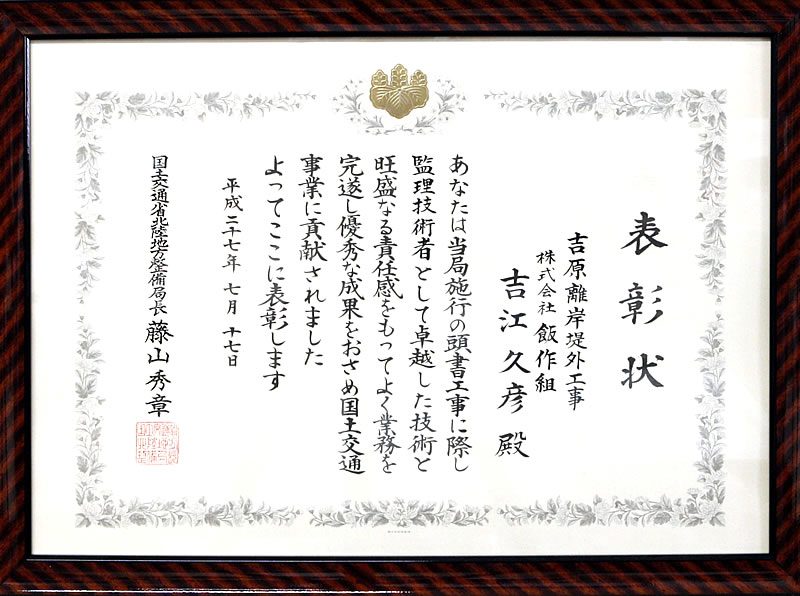 表彰状
吉原離岸堤外工事
株式会社 飯作組
吉江久彦 殿
あなたは当局施行の頭書工事に際し
監理技術者として卓越した技術と
旺盛なる責任感をもってよく業務を
完遂し優秀な成果をおさめ国土交通
事業に貢献されました
よってここに表彰します
平成二十七年 七月 十七日
国土交通省北陸地方整備局長 藤山秀章